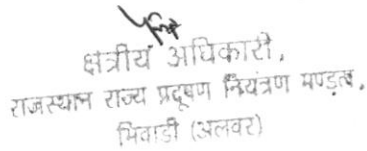 क्षत्रीय अधिकारी,
राजस्थान राज्य प्रदूषण नियंत्रण मण्डल,
भिवाडी (अलवर)